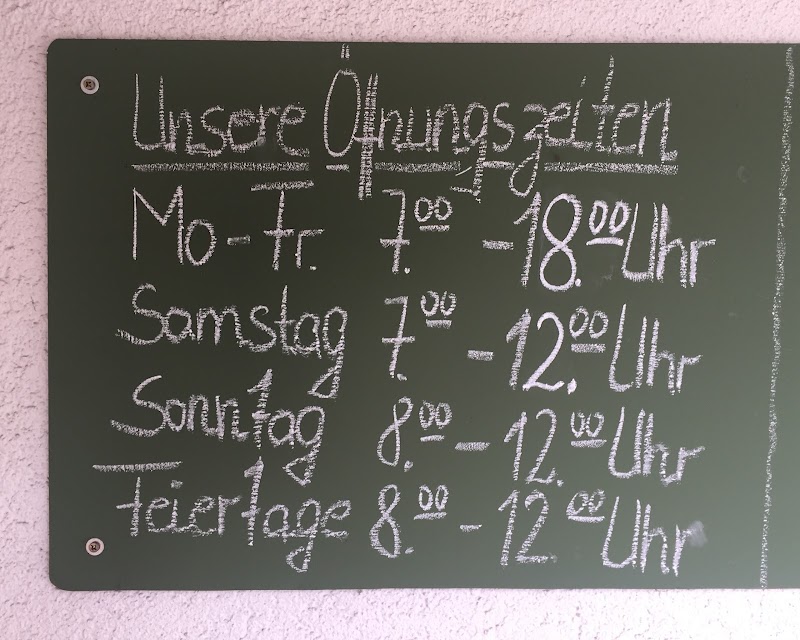 Unsere Öffnungszeiten
Mo-Fr. 7.00 - 18.00 Uhr
Samstag 7.00 - 12.00 Uhr
Sonntag 8.00 - 12.00 Uhr
Feiertage 8.00 - 12.00 Uhr